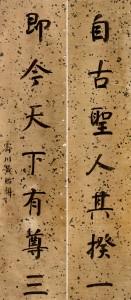 自古聖人其揆一
即今天下有尊三